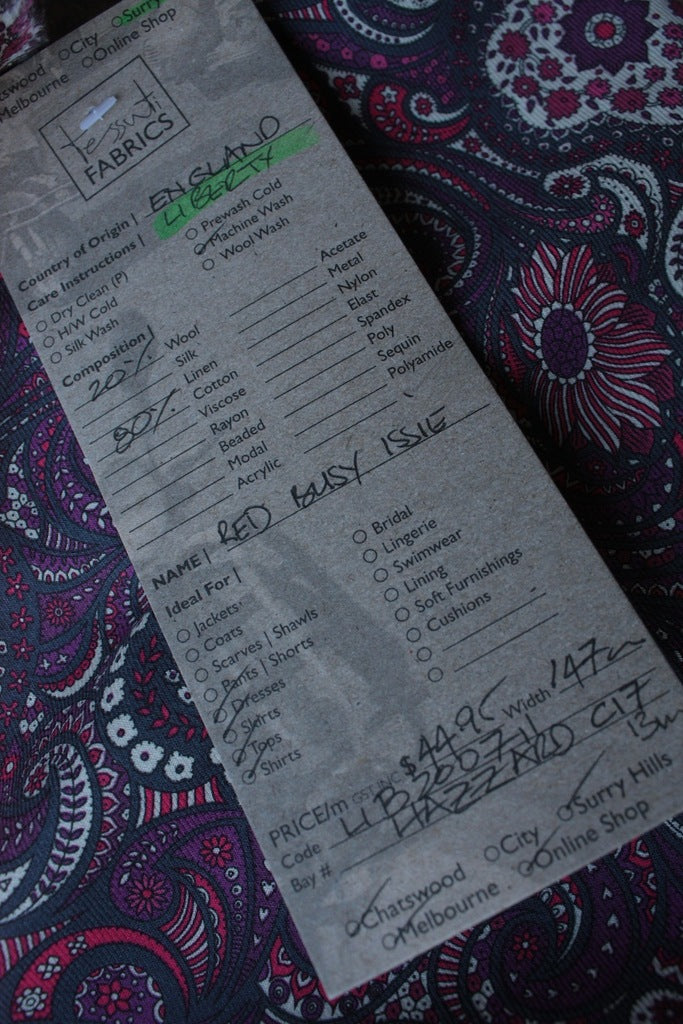 City
Surry
Chatswood
Melbourne
Online Shop
tessuti
FABRICS
Country of Origin | ENGLAND
LIBERTY
Care Instructions |
Dry Clean (P)
H/W Cold
Silk Wash
Prewash Cold
Machine Wash
Wool Wash
Composition |
20% Wool
Silk
Linen
80% Cotton
Viscose
Rayon
Beaded
Modal
Acrylic
Acetate
Metal
Nylon
Elast
Spandex
Poly
Sequin
Polyamide
NAME | RED BUSY ISSIE
Ideal For |
Jackets
Coats
Scarves | Shawls
Pants | Shorts
Dresses
Skirts
Tops
Shirts
Bridal
Lingerie
Swimwear
Lining
Soft Furnishings
Cushions
PRICE/m GST INC $44.95 Width 147cm
Code
Bay # HAZZARD C17
13m
Chatswood
City
Surry Hills
Melbourne
Online Shop